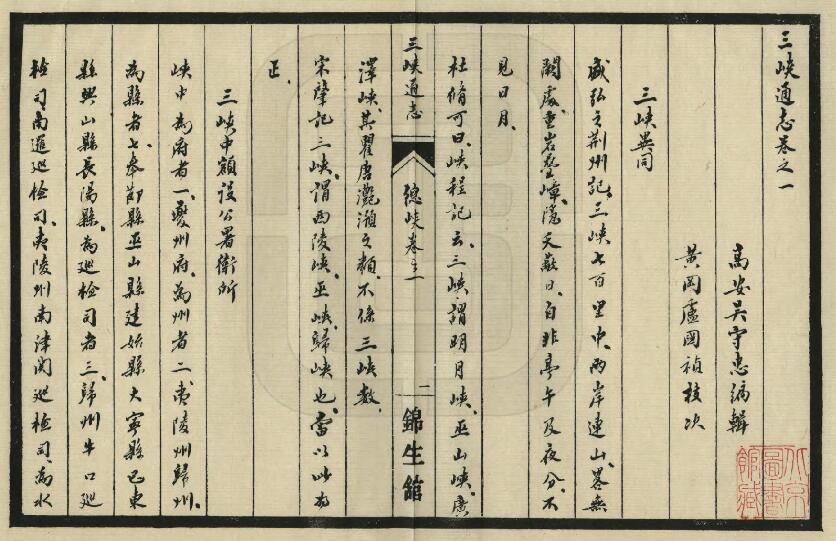 三峽通志卷之一
萬安吳守忠編輯
黃岡盧國禎校次
三峽異同
盛弘之荆州記、三峽七百里中、兩岸連山、畧無
闕處、重岩疊嶂、隱天蔽日、自非亭午及夜分、不
見日月、
杜脩可曰、峽程記云、三峽、謂明月峽、巫山峽、廣
三峽通志
總峽卷之一
二
錦生舘
澤峽、其瞿唐灔澦之類、不係三峽數、
宋肇記三峽、謂西陵峽、巫峽、歸峽也、當以此為
正、
三峽中額設公署衛所
峽中為府者一、夔州府、為州者二、夷陵州歸州、
為縣者七、奉節縣巫山縣建始縣大寧縣巴東
縣興山縣長陽縣、為巡檢司者三、歸州牛口巡
檢司、南邏巡檢司、夷陵州南津関巡檢司、為水
北京圖書館藏